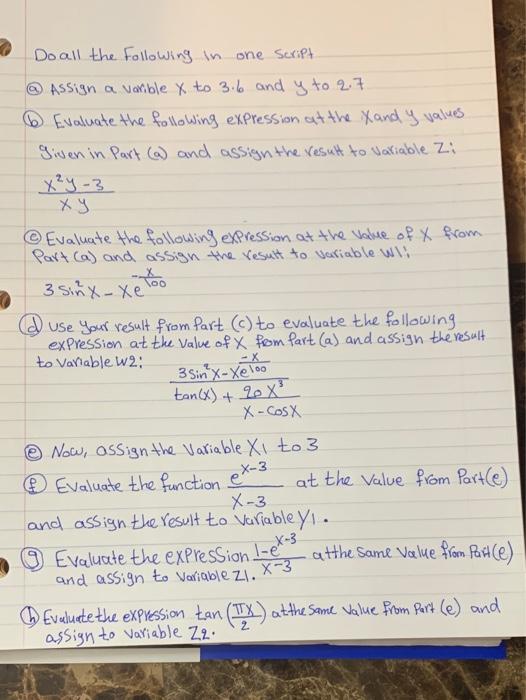 Do all the Following in one Script
(a) Assign a varible X to 3.6 and y to 2.7
(b) Evaluate the following expression at the X and y values
given in Part (a) and assign the result to variable Z:
x²y-3
xy
(c) Evaluate the following expression at the value of X from
Part (a) and assign the result to variable W1:
3 sin²x - xe^(-x/100)
(d) use your result from Part (c) to evaluate the following
expression at the value of X from Part (a) and assign the result
to variable W2:
3 sin²x - xe^(-x/100)
tan(x) + 20x³
x - cosx
(e) Now, assign the variable X1 to 3
(f) Evaluate the function e^(x-3) at the value from Part (e)
x-3
and assign the result to variable y1.
(g) Evaluate the expression 1-e^(x-3) at the same value from Part (e)
x-3
and assign to variable Z1.
(h) Evaluate the expression tan(πx/2) at the same value from Part (e) and
assign to variable Z2.